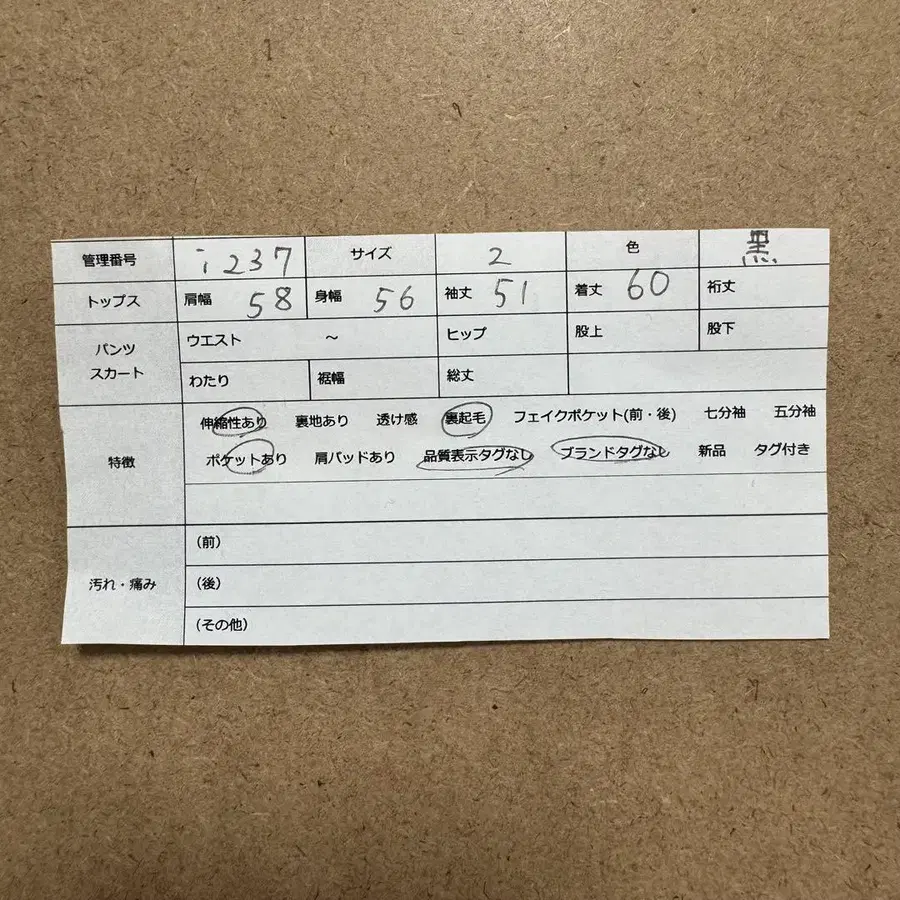 管理番号 i237 サイズ 2 色 黒
トップス 肩幅 58 身幅 56 袖丈 51 着丈 60 裄丈
パンツ スカート ウエスト ～ ヒップ 股上 股下
わたり 裾幅 総丈
特徴 伸縮性あり 裏地あり 透け感 裏起毛 フェイクポケット(前・後) 七分袖 五分袖
ポケットあり 肩パッドあり 品質表示タグなし ブランドタグなし 新品 タグ付き
汚れ・痛み (前)
(後)
(その他)